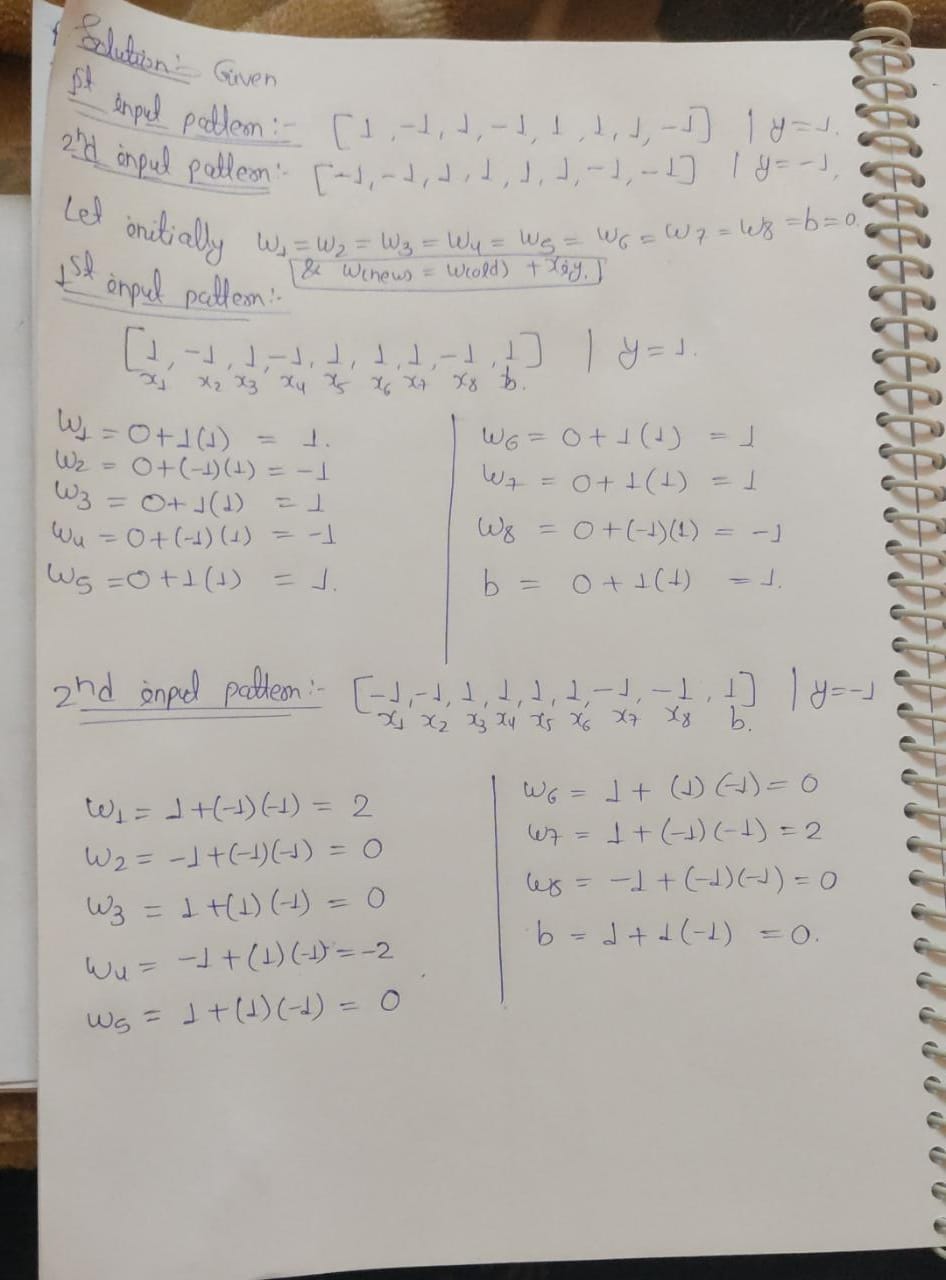 Solution:- Given
1st input pattern:- [1, -1, 1, -1, 1, 1, 1, -1] | y=1.
2nd input pattern:- [-1, -1, 1, 1, 1, 1, -1, -1] | y=-1,
Let initially w1 = w2 = w3 = w4 = w5 = w6 = w7 = w8 = b = 0.
[& w(new) = w(old) + xiy.]
1st input pattern:-
[1, -1, 1, -1, 1, 1, 1, -1, 1] | y=1.
x1 x2 x3 x4 x5 x6 x7 x8 b.
w1 = 0+1(1) = 1.
w2 = 0+(-1)(1) = -1
w3 = 0+1(1) = 1
w4 = 0+(-1)(1) = -1
w5 = 0+1(1) = 1.
w6 = 0+1(1) = 1
w7 = 0+1(1) = 1
w8 = 0+(-1)(1) = -1
b = 0+1(1) = 1.
2nd input pattern:- [-1, -1, 1, 1, 1, 1, -1, -1, 1] | y=-1
x1 x2 x3 x4 x5 x6 x7 x8 b.
w1 = 1+(-1)(-1) = 2
w2 = -1+(-1)(-1) = 0
w3 = 1+(1)(-1) = 0
w4 = -1+(1)(-1) = -2
w5 = 1+(1)(-1) = 0
w6 = 1+(1)(-1) = 0
w7 = 1+(-1)(-1) = 2
w8 = -1+(-1)(-1) = 0
b = 1+1(-1) = 0.